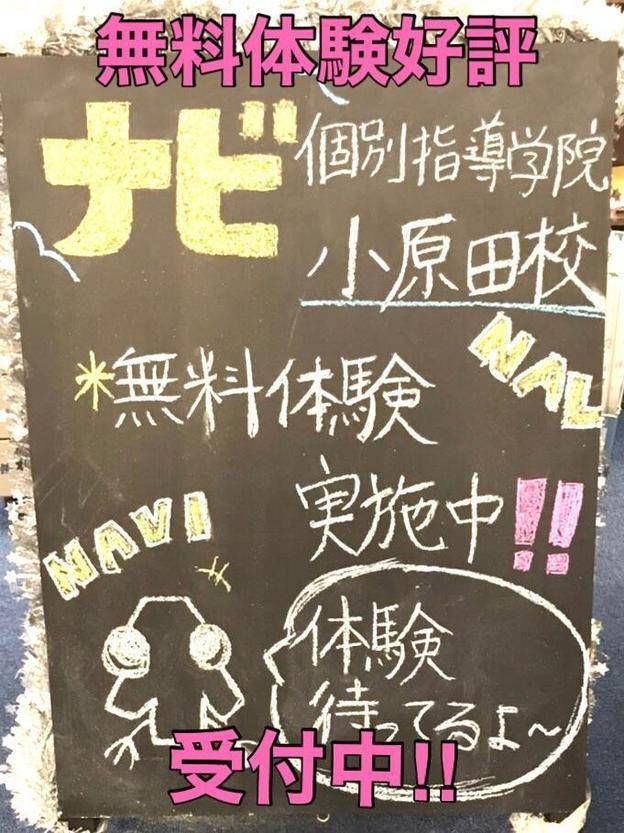 無料体験好評
ナビ
個別指導学院
小原田校
NAL
*無料体験
実施中!!
NAVI
体験
待ってるよ~
受付中!!